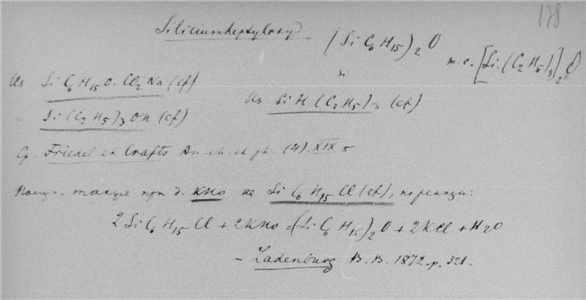 178
Siliciumheptyloxyd (SiC6H15)2O
m.e. [Si(C2H5)3]2O
Us SiC6H15O.Cl2Na (cf)
Us SiH(C2H5)3 (cf)
Si(C2H5)3OH (cf)
Cf. Friedel et Crafts An. ch. et ph. (4) XIX 5
такуе при д. KHO на SiC6H15Cl (cf), по реакции:
2SiC6H15Cl + 2KHO = (SiC6H15)2O + 2KCl + H2O
– Ladenburg B.B. 1872. p. 321.